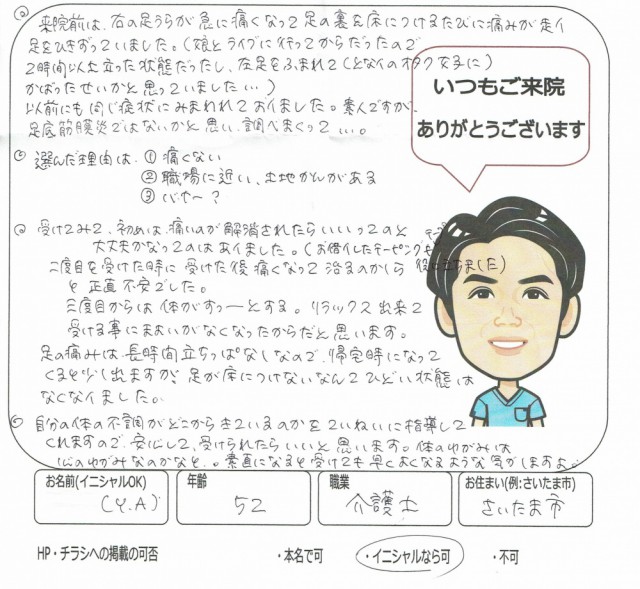 ◎ 来院前は、右の足うらが急に痛くなって足の裏を床につけるたびに痛みが走り
足をひきずっていました。(娘とライブに行ってからだったので
2時間以上立った状態だったし、左足をふまれて(となりのオタク女子に)
かばったせいかと思っていました…)
以前にも同じ症状にみまわれておりました。素人ですが、
足底筋膜炎ではないかと思い、調べまくって…。
◎ 選んだ理由は、① 痛くない
② 職場に近い、土地かんがある
③
◎ 受けてみて、初めは、痛いのが解消されたらいいなってのと
大丈夫かなってのはありました。(お借りしたテーピングも役に立ちました)
二度目を受けた時に受けた後痛くなって治るのかしら
と正直不安でした。
三度目からは体がすっーとする。リラックス出来て
受ける事にまよいがなくなったからだと思います。
足の痛みは長時間立ちっぱなしなので、帰宅時になって
くると少し出ますが、足が床につけないなんてひどい状態は
なくなりました。
◎ 自分の体の不調がどこからきているのかをていねいに指導して
くれますので、安心して、受けられたらいいと思います。体のゆがみは
心のゆがみなのかなと。素直になると受けても早くよくなるような気がしますよ。
いつもご来院
ありがとうございます
お名前(イニシャルOK) 年齢 職業 お住まい(例:さいたま市)
(Y.A) 52 介護士 さいたま市
HP・チラシへの掲載の可否 ・本名で可 ・イニシャルなら可 ・不可